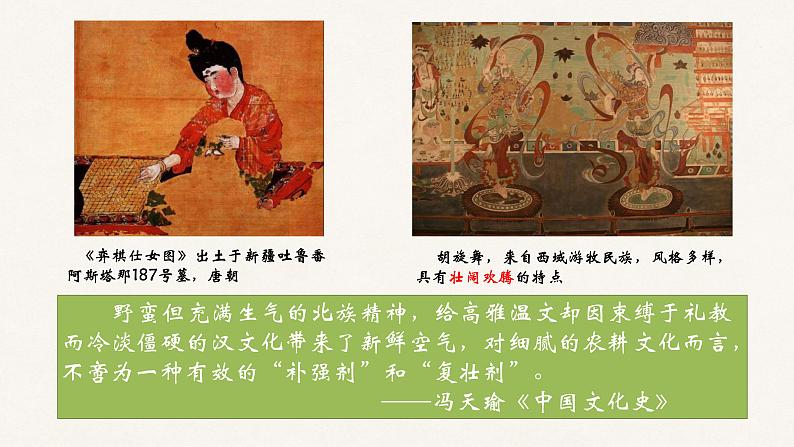 《弈棋仕女图》出土于新疆吐鲁番
阿斯塔那187号墓，唐朝
胡旋舞，来自西域游牧民族，风格多样，
具有壮阔欢腾的特点
野蛮但充满生气的北族精神，给高雅温文却因束缚于礼教
而冷淡僵硬的汉文化带来了新鲜空气，对细腻的农耕文化而言，
不啻为一种有效的“补强剂”和“复壮剂”。
——冯天瑜《中国文化史》